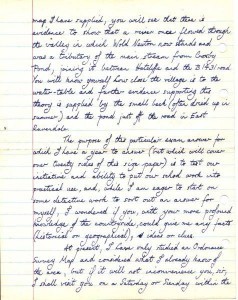 map I have supplied, you will see that there is
evidence to show that a river once flowed through
the valley in which Wold Newton now stands and
was a tributary of the main stream from
Pond, joining it between Hatcliffe and the B1431 road
You will know yourself how close the village is to the
water-table and further evidence supporting this
theory is supplied by the small beck (often dried up in
summer) and the pond just off the road in East
Ravendale.
The purpose of this particular exam, answer for
which I have a year to answer (but which will cover
over twenty sides of this size paper) is to test our
initiative and ability to put our school work into
practical use, and, while I am eager to start on
some detective work to sort out an answer for
myself, I wondered if you, with your more profound
knowledge of the countryside, could give me any facts
(historical or geographical), & ideas or clues.
At present, I have only studied an Ordnance
Survey Map and considered what I already know of
the area, but if it will not inconvenience you, sir,
I shall visit you on a Saturday or Sunday within the